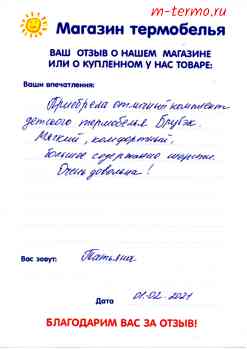 m-termo.ru
Магазин термобелья
ВАШ ОТЗЫВ О НАШЕМ МАГАЗИНЕ
ИЛИ О КУПЛЕННОМ У НАС ТОВАРЕ:
Ваши впечатления:
Приобрела отличный комплект
детского термобелья Брубэк.
Мягкий, комфортный,
большое содержание шерсти.
Очень довольна!
Вас зовут: Татьяна
Дата 01.02.2021
БЛАГОДАРИМ ВАС ЗА ОТЗЫВ!